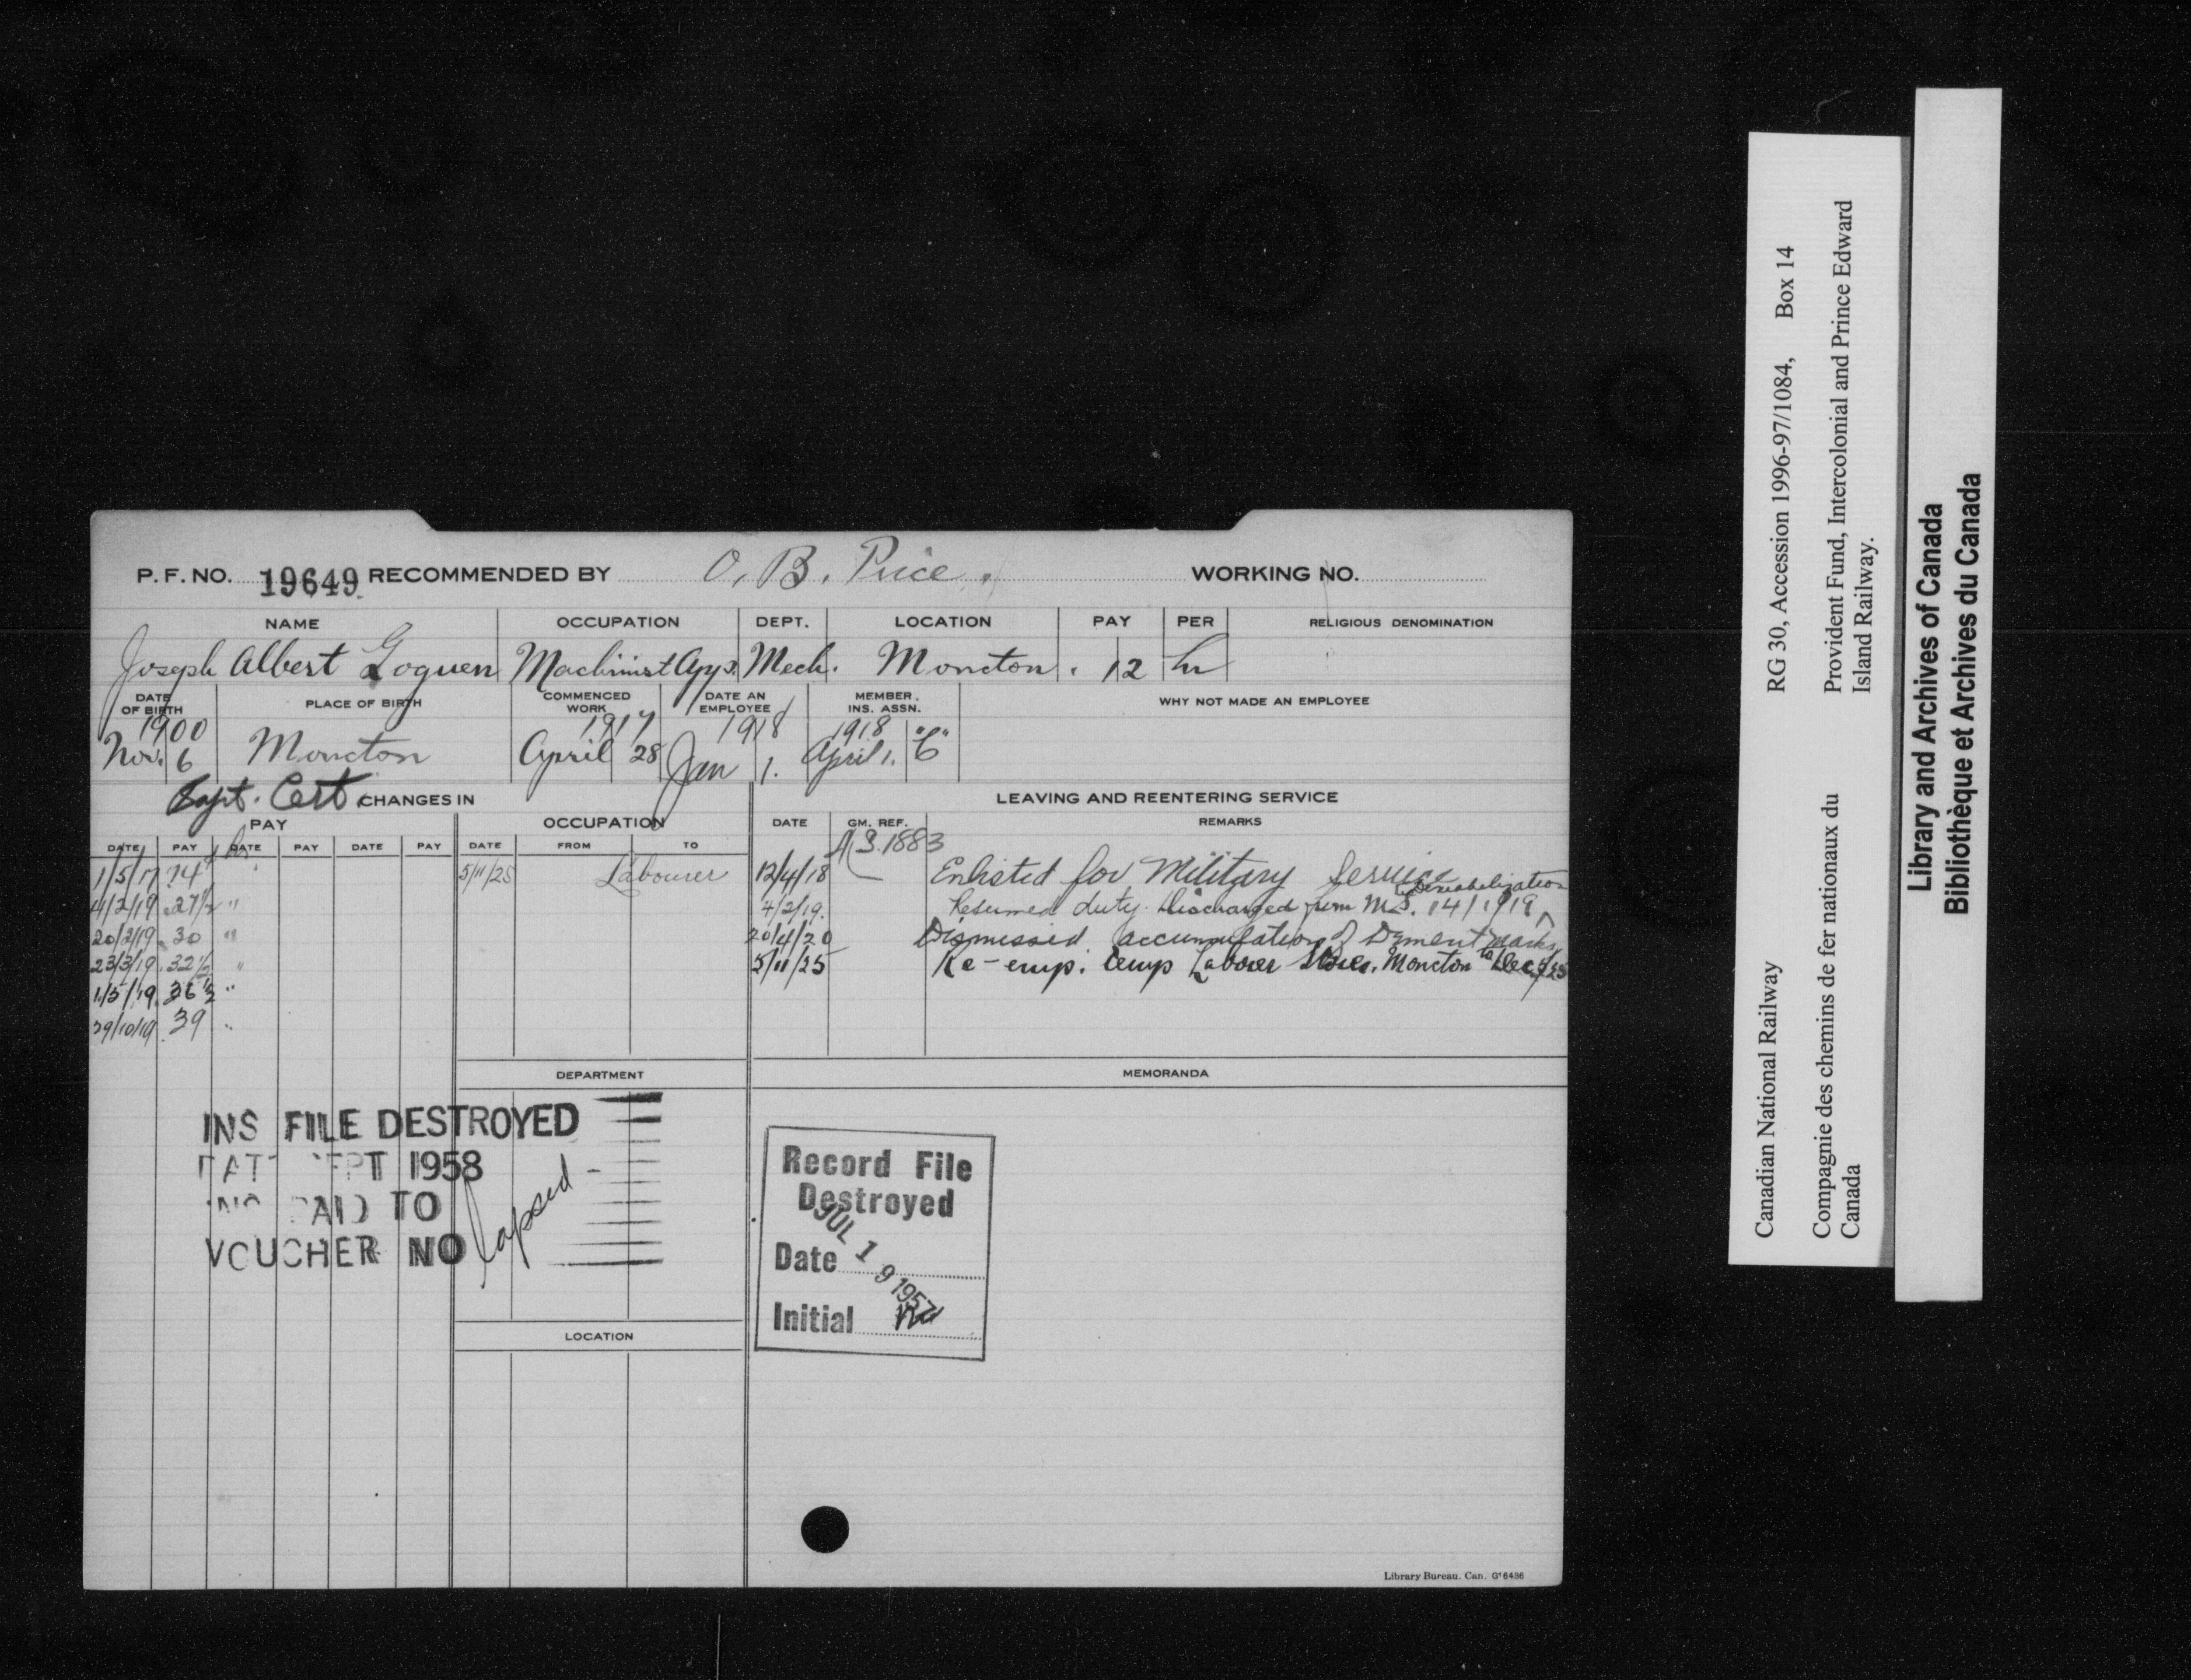 P. F. NO. 19649 RECOMMENDED BY O. B. Price. WORKING NO.
NAME OCCUPATION DEPT. LOCATION PAY PER RELIGIOUS DENOMINATION
Joseph Albert Goguen Machinist App. Mech. Moncton. 12 hr
DATE OF BIRTH PLACE OF BIRTH COMMENCED WORK DATE AN EMPLOYEE MEMBER. INS. ASSN. WHY NOT MADE AN EMPLOYEE
1900 1917 1918 1918 "C"
Nov. 6 Moncton April 28 Jan 1. April 1.
Bapt. Cert. CHANGES IN LEAVING AND REENTERING SERVICE
PAY OCCUPATION DATE GM. REF. REMARKS
DATE PAY DATE PAY DATE PAY DATE FROM TO
1/5/17 14 hr 5/11/25 Labourer 12/4/18 A S. 1883 Enlisted for Military Service
4/2/19 .27½ " 4/2/19. Resumed duty. Discharged from M.S. 14/1/919 Demobilization
20/2/19 .30 " 20/4/20 Dismissed accumulation of Demerit Marks
23/3/19 .32½ " 5/11/25 Re-emp. Temp Laborer Stores. Moncton to Dec 5/25
1/5/19 .36½ "
29/10/19 .39 "
DEPARTMENT MEMORANDA
INS FILE DESTROYED
DATE SEPT 1958
INS PAID TO
VOUCHER NO lapsed -
Record File
Destroyed
JUL 19 1957
Date
Initial
LOCATION
Library Bureau. Can. G16436
Canadian National Railway RG 30, Accession 1996-97/1084, Box 14
Compagnie des chemins de fer nationaux du Provident Fund, Intercolonial and Prince Edward
Canada Island Railway.
Library and Archives of Canada
Bibliothèque et Archives du Canada